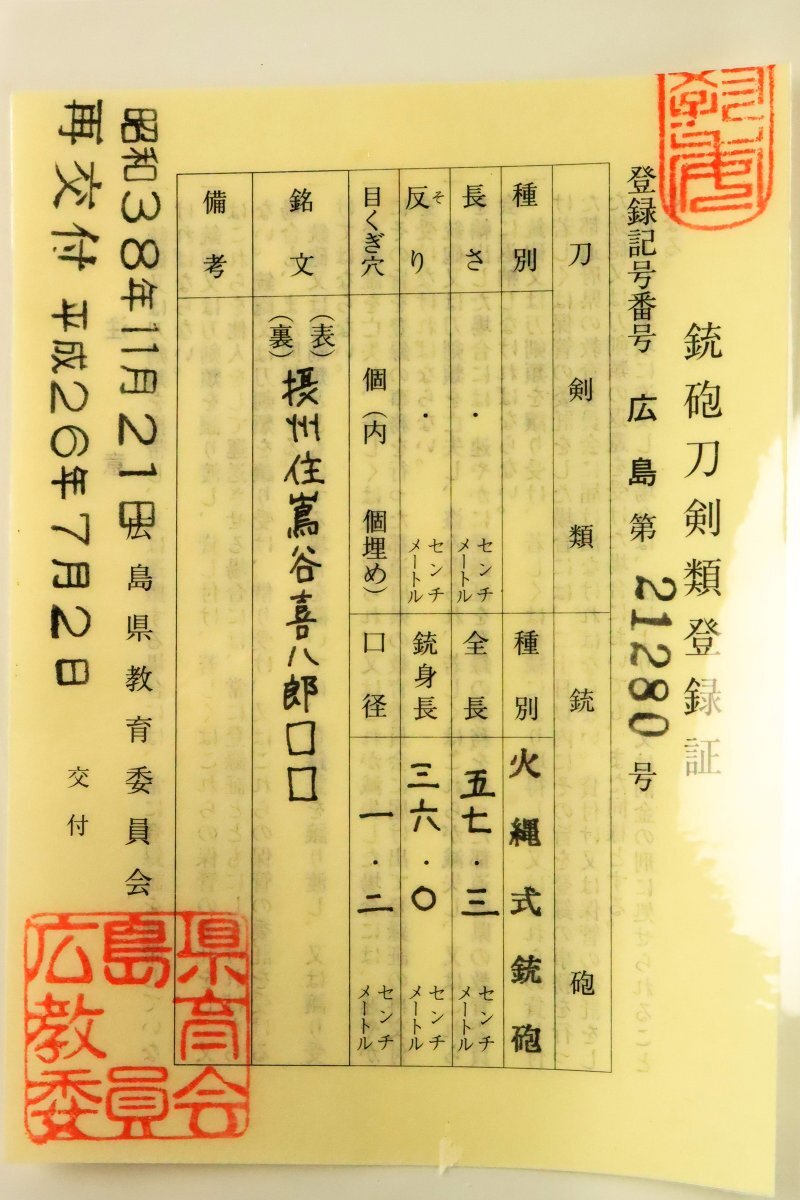 銃砲刀剣類登録証
登録記号番号 広島第 21280 号
刀剣類
種別
長さ ・ センチメートル
反り ・ センチメートル
そ
目くぎ穴 個(内 個埋め)
銃砲
種別 火縄式銃砲
全長 五七・三 センチメートル
銃身長 三六・〇 センチメートル
口径 一・二 センチメートル
銘文
(表)
(裏)
摂州住嶌谷喜八郎□□
備考
昭和38年11月21日
広島県教育委員会
再交付 平成26年7月2日
交付
広島県
教育
委員会